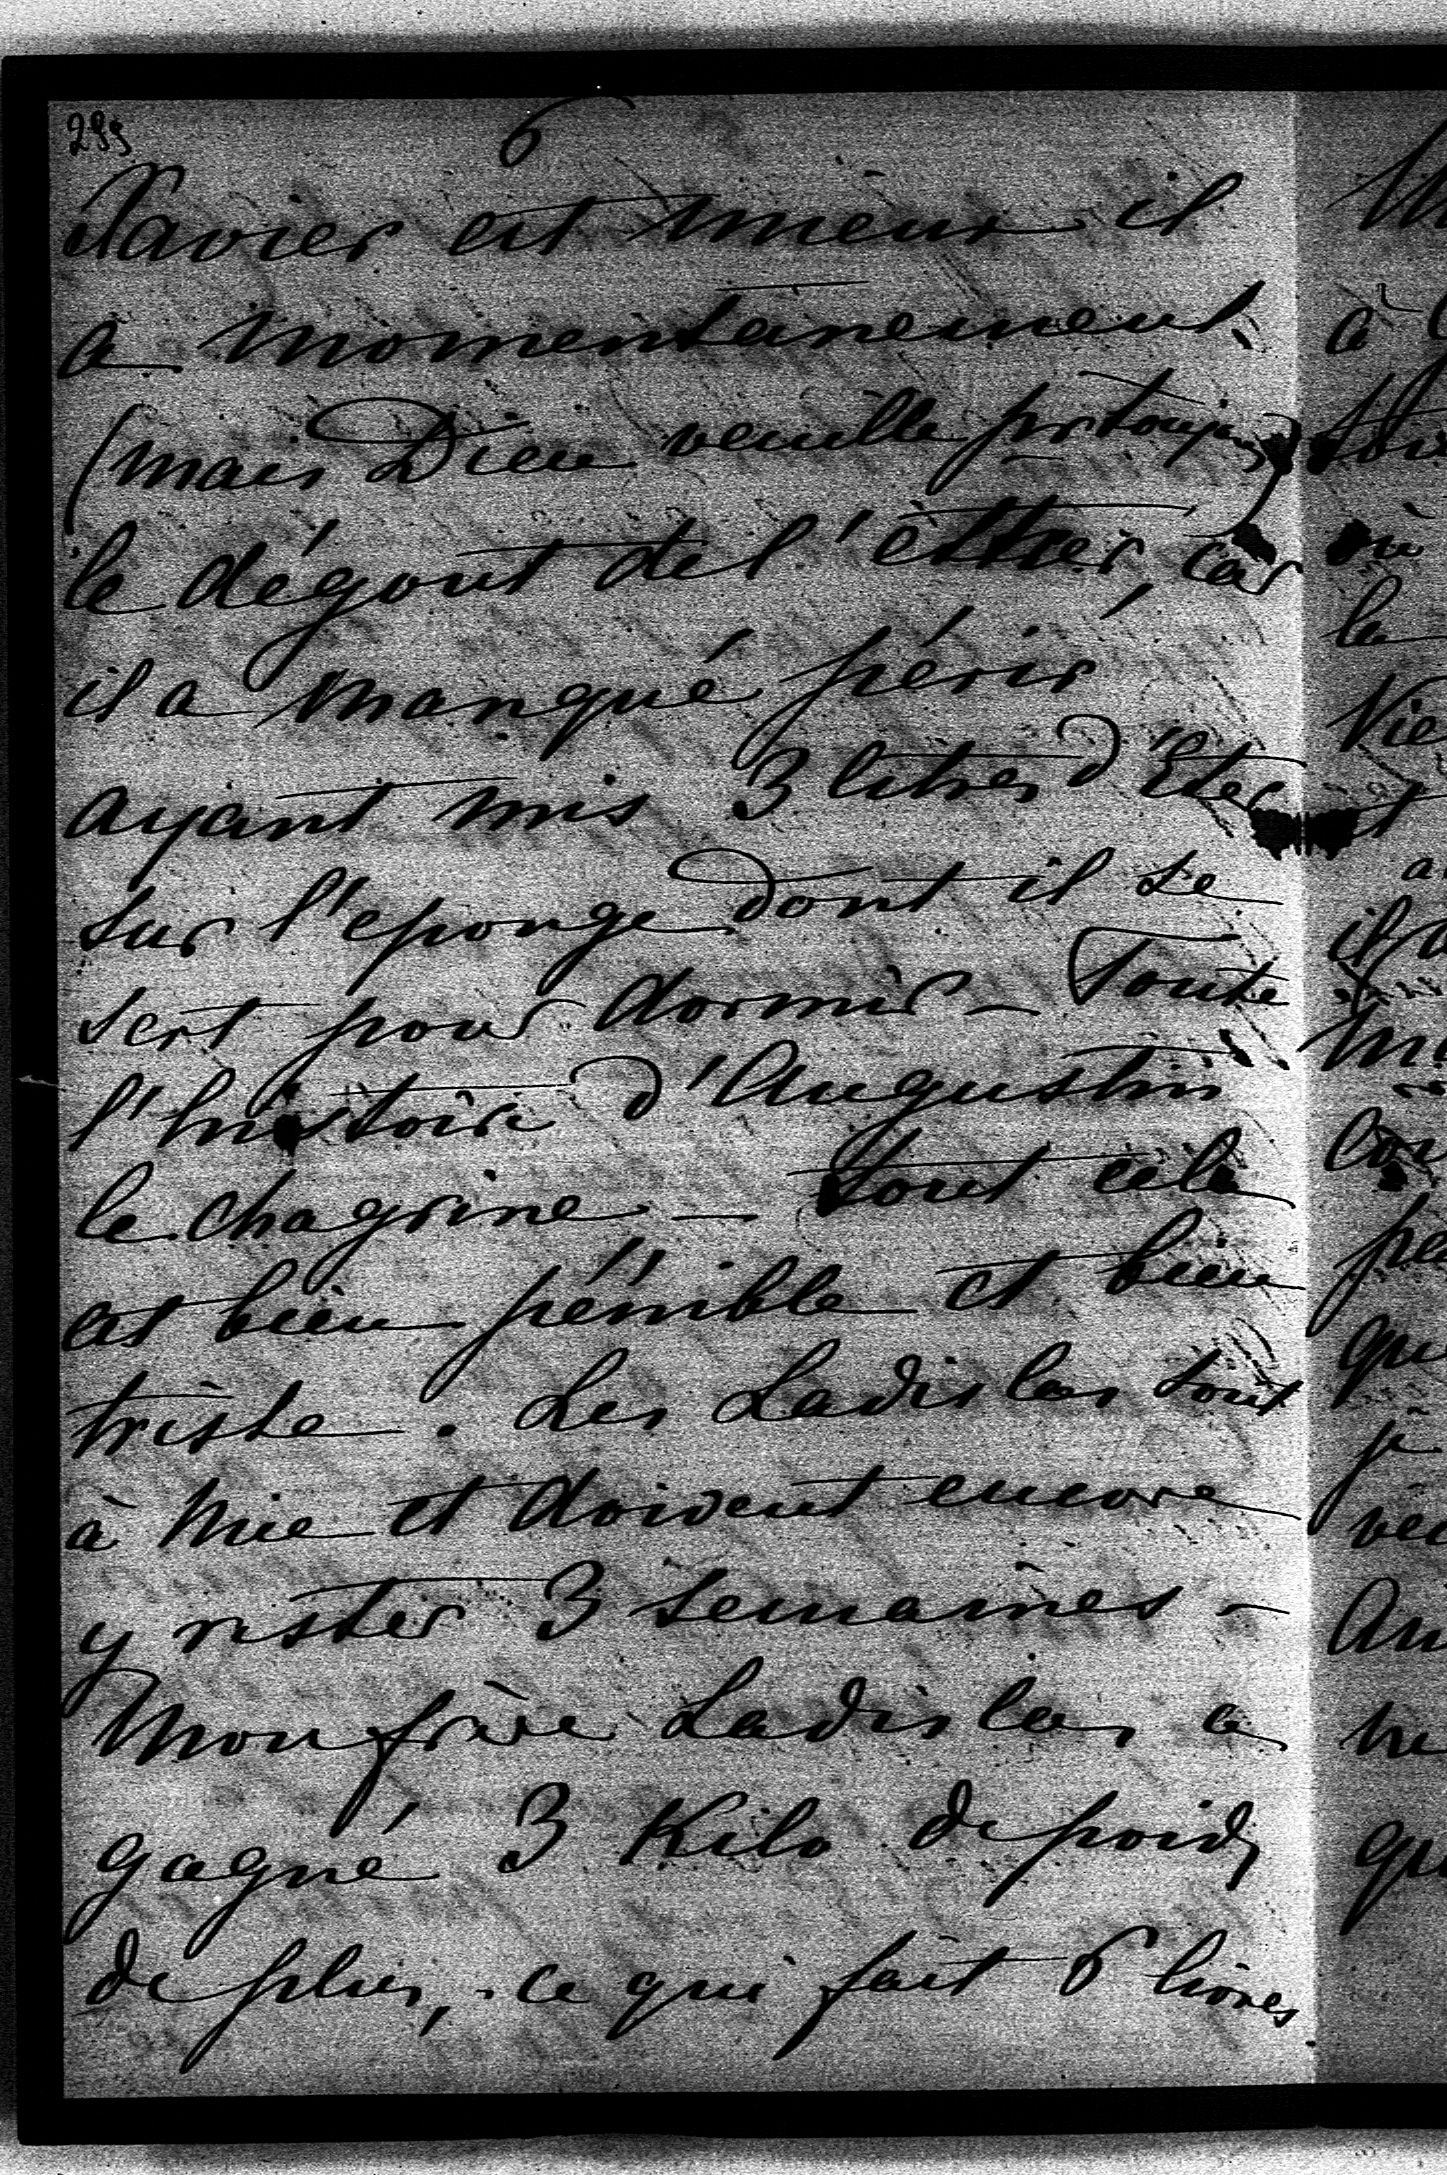 299
6
Xavier est mieux il
a momentanement
(mais Dieu veuille pr toujours)
le dégout de l'étter, car
il a manqué périr
ayant mis 3 litres d'Éter
sur l'eponge dont il se
sert pour dormir – Toute
l'histoire d'Augustin
le chagrine – tout cela
est bien pénible et bien
triste. Les Ladislas sont
à Nice et doivent encore
y rester 3 semaines –
Mon frère Ladislas a
gagné 3 Kilo de poids
de plus, ce qui fait 6 livres